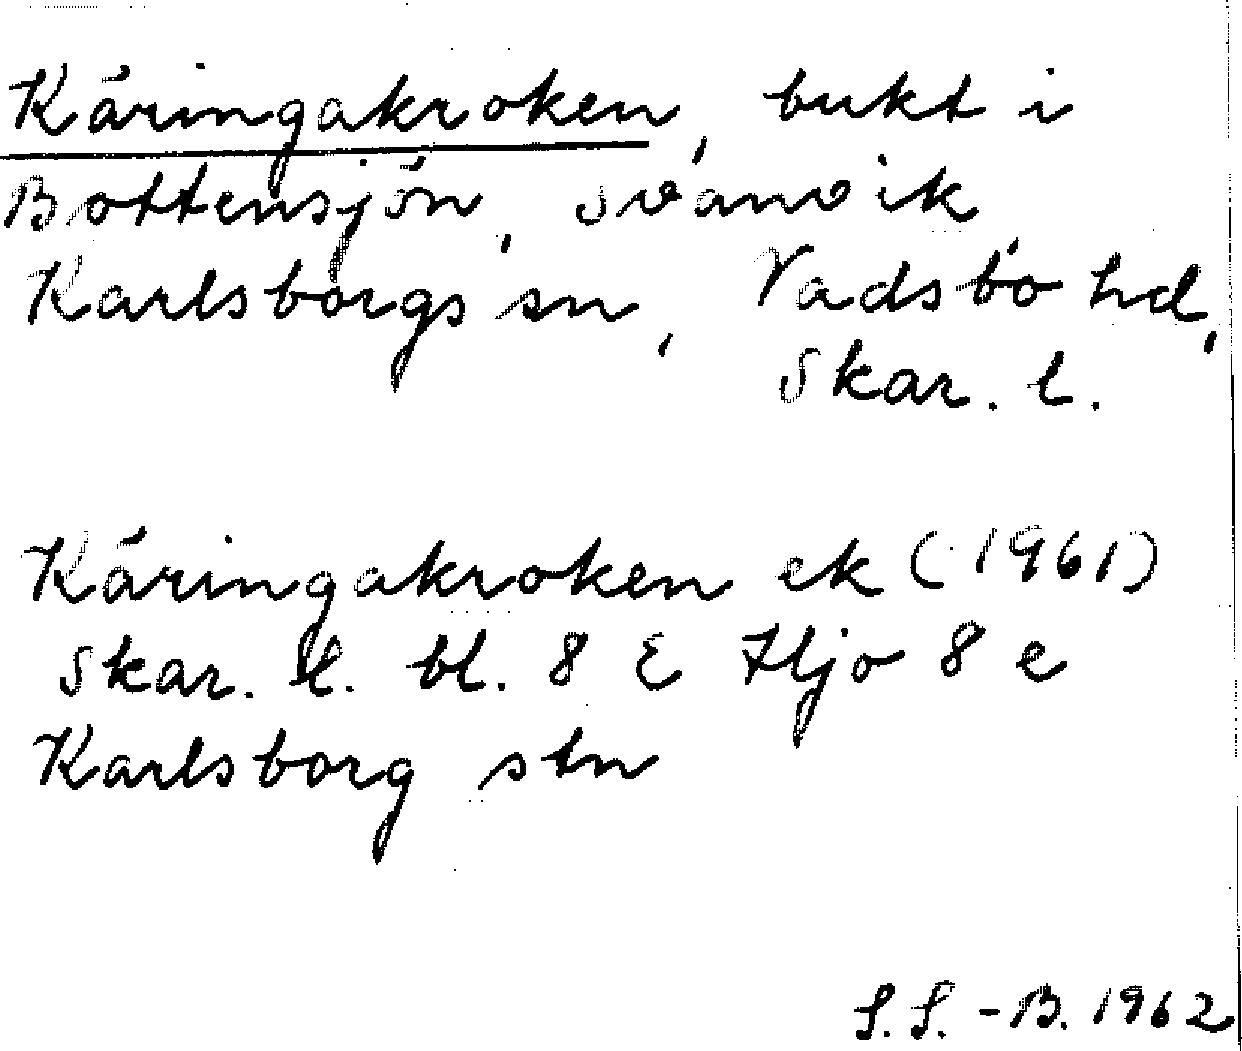 Käringakroken, bukt i
Bottensjön, Svanvik
Karlsborgs sn, Vadsbo hd,
Skar. l.
Käringakroken ek (1961)
Skar. l. bl. 8 E Hjo 8 e
Karlsborg stn
S.S.-B. 1962